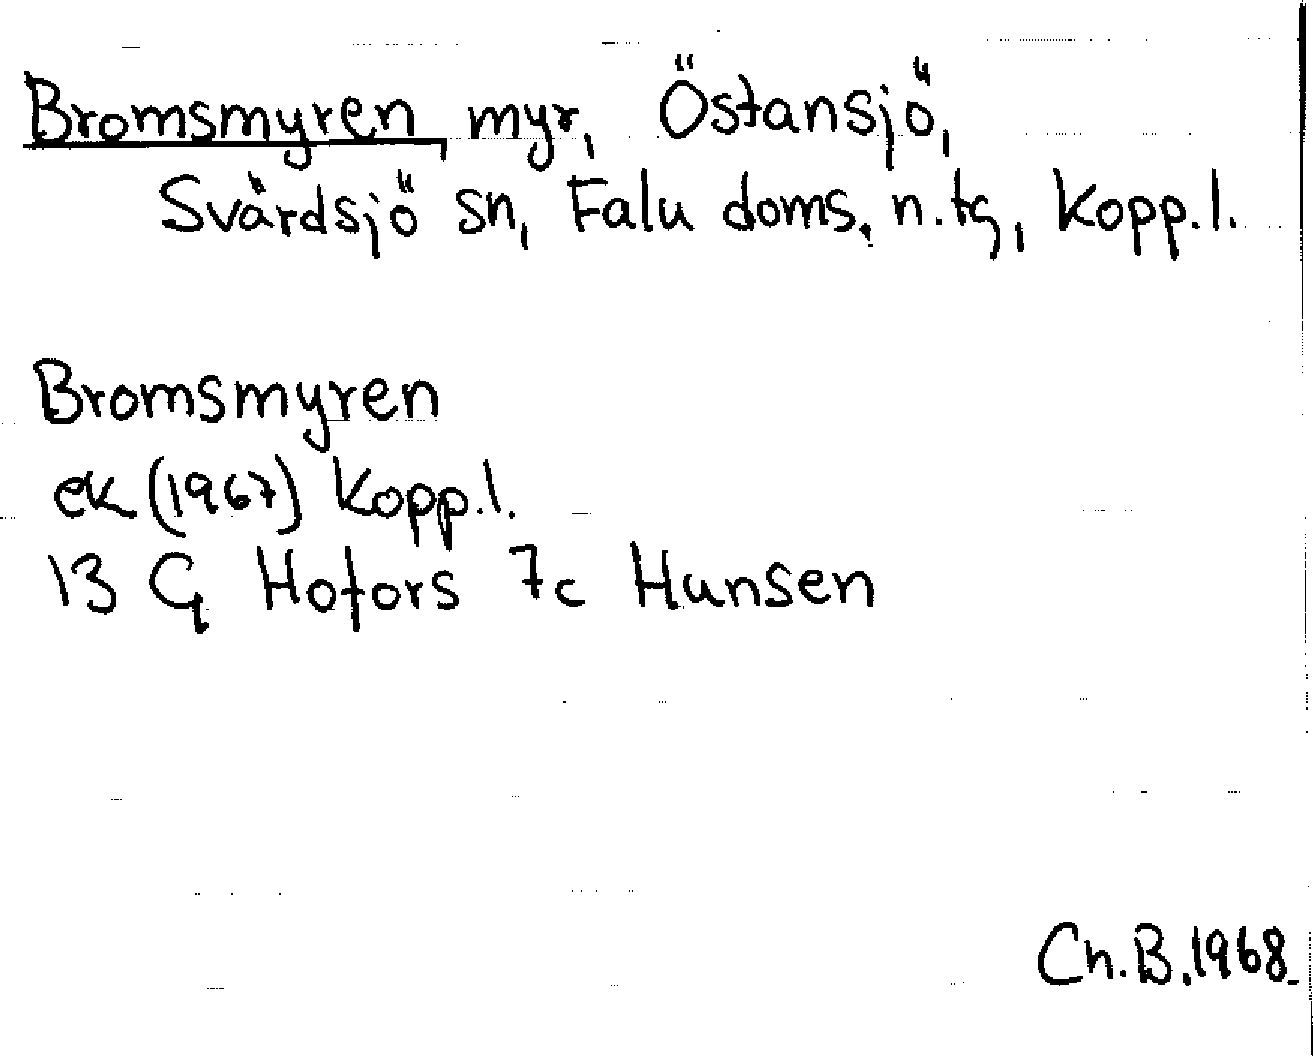 Bromsmyren, myr, Östansjö,
Svärdsjö sn, Falu doms. n. tg, Kopp.l.
Bromsmyren
ek (1967) Kopp.l.
13 G Hofors 7c Hansen
Ch.B.1968